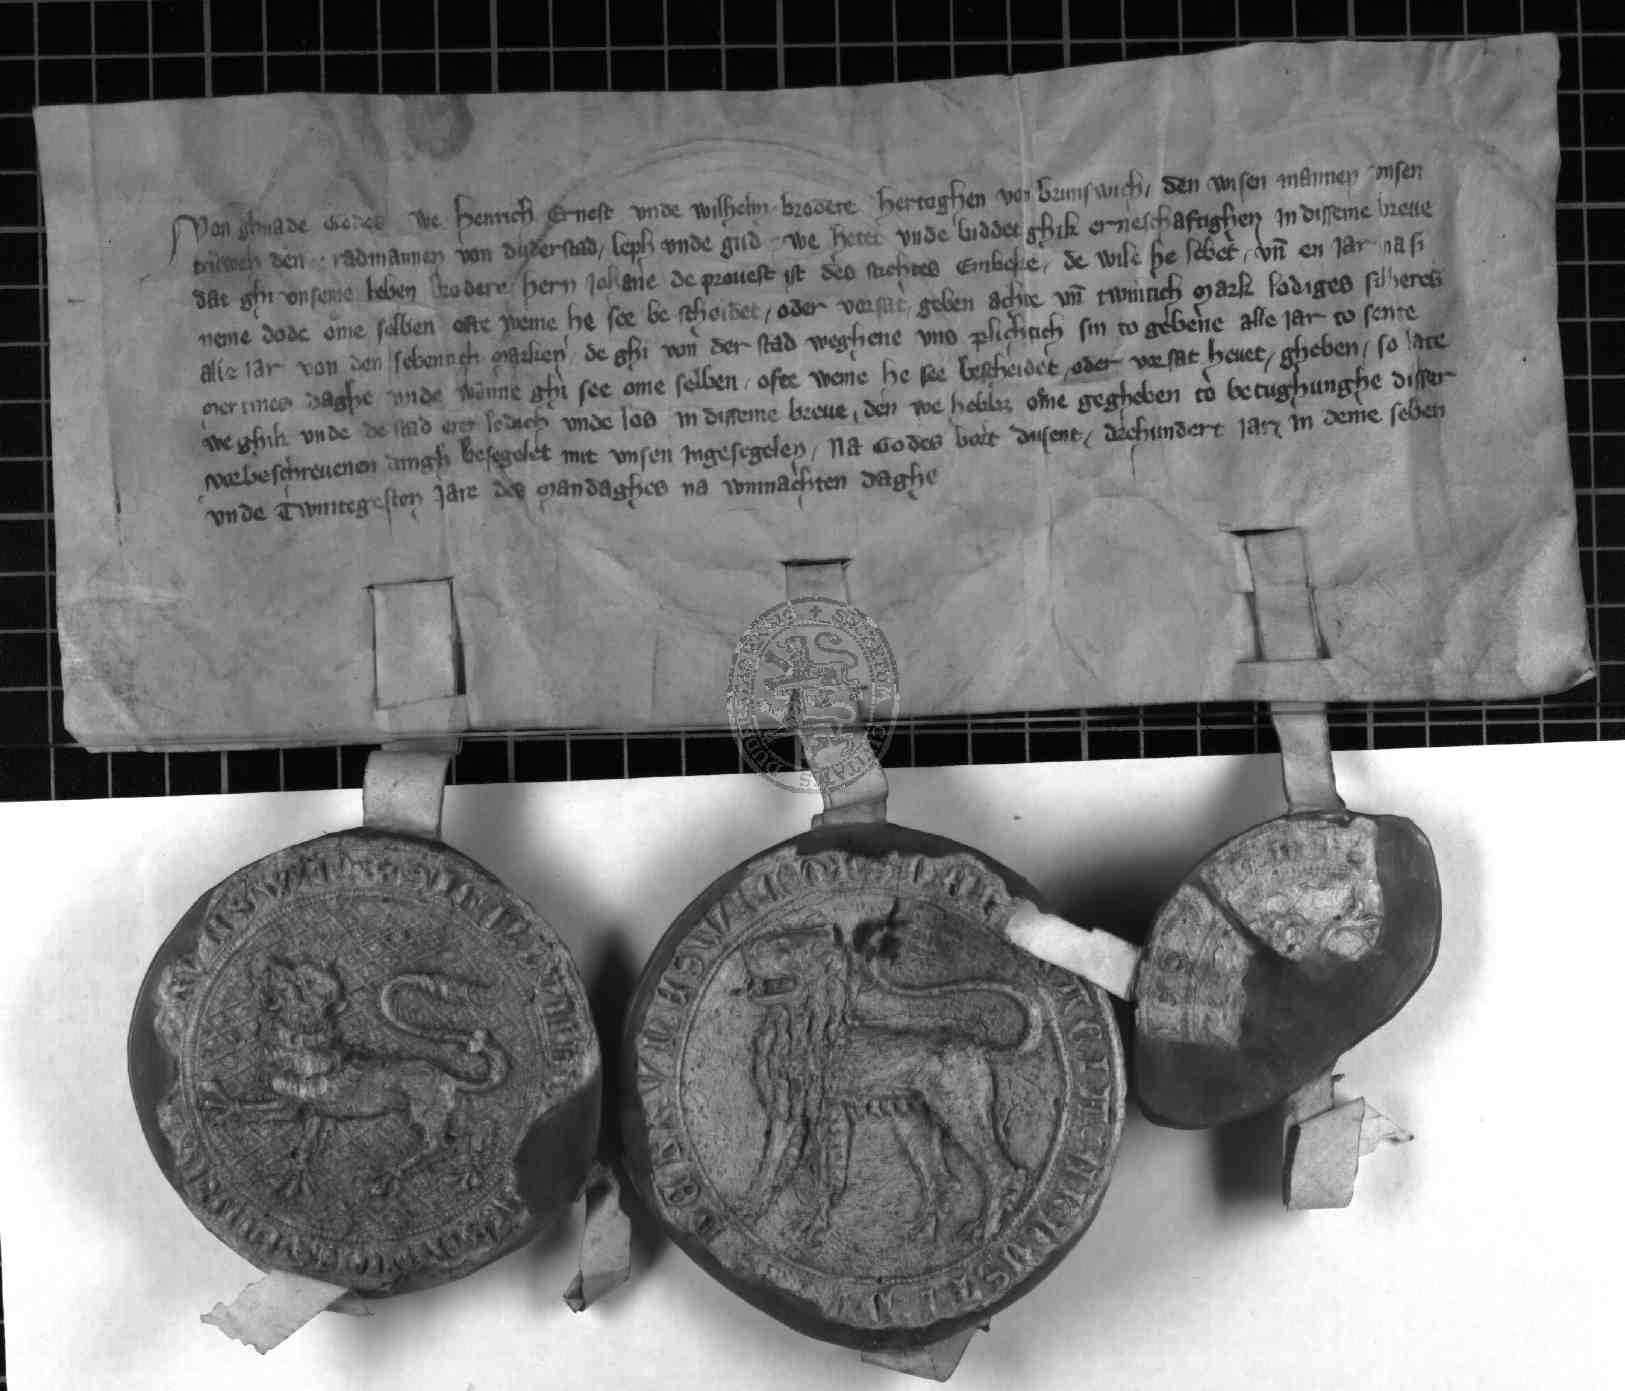 Von ghnade Godes we henrich Ernest vnde wilhelm brodere hertoghen von brunswich, den wisen mannen vnsen
truwen den radmannen von duderstad, leph vnde gud we hetet vnde biddet ghik ernschaftighen in disseme breue
dat ghi vnseme leben brodere hern Johane de prouest ist des stichtes Embeke, de wile he lebet, vn̄ en iar na si
neme dode ome selben ofte weme he see be scheidet, oder vorsat, geben achte vn̄ twintich Mark lodiges silueres
alle iar von den sebentich marken, de ghi von der stad weghene vns plichtich sin to gebene alle iar to sente
mertines daghe vnde wanne ghi see ome selben, ofte weme he see bescheidet, oder vorsat heuet, gheben, so late
we ghik vnde de stad erer ledich vnde los in disseme breue, den we hebbz ome gegheben to betughunghe disser
vorbeschreuenen dingh besegelet mit vnsen ingesegelen, Na Godes bort dusent, drehundert iar, in deme seben
vnde Twintegesten Jare des Mandaghes na winnachten daghe
SECRETUM CIVITATIS DUDERSTADENSIS